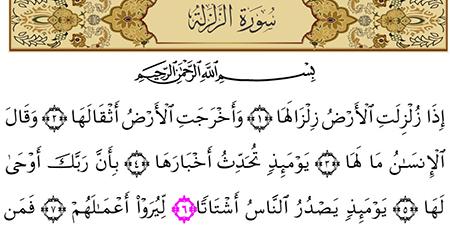 سُورَةُ الزَّلْزَلَةِ
بِسْمِ ٱللَّهِ ٱلرَّحْمَٰنِ ٱلرَّحِيمِ
إِذَا زُلْزِلَتِ ٱلْأَرْضُ زِلْزَالَهَا ﴿١﴾ وَأَخْرَجَتِ ٱلْأَرْضُ أَثْقَالَهَا ﴿٢﴾ وَقَالَ
ٱلْإِنسَٰنُ مَا لَهَا ﴿٣﴾ يَوْمَئِذٍ تُحَدِّثُ أَخْبَارَهَا ﴿٤﴾ بِأَنَّ رَبَّكَ أَوْحَىٰ
لَهَا ﴿٥﴾ يَوْمَئِذٍ يَصْدُرُ ٱلنَّاسُ أَشْتَاتًا ﴿٦﴾ لِّيُرَوْا۟ أَعْمَٰلَهُمْ ﴿٧﴾ فَمَن